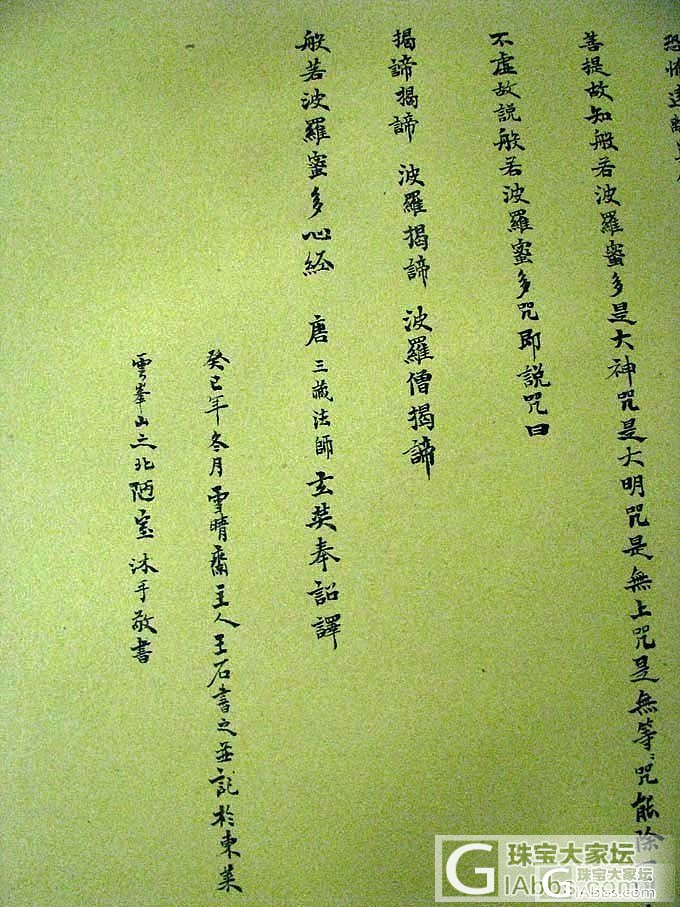 恐怖遠離
菩提故知般若波羅蜜多是大神咒是大明咒是無上咒是無等〻咒能除
不虛故説般若波羅蜜多咒即説咒曰
揭諦揭諦 波羅揭諦 波羅僧揭諦
般若波羅蜜多心經 唐三藏法師玄奘奉詔譯
癸巳年冬月雪晴齋主人王石書之並記於東萊
雲峯山之北陋室沐手敬書
珠宝大家坛
GIAbbs.com
珠宝大家坛
GIAbbs.com